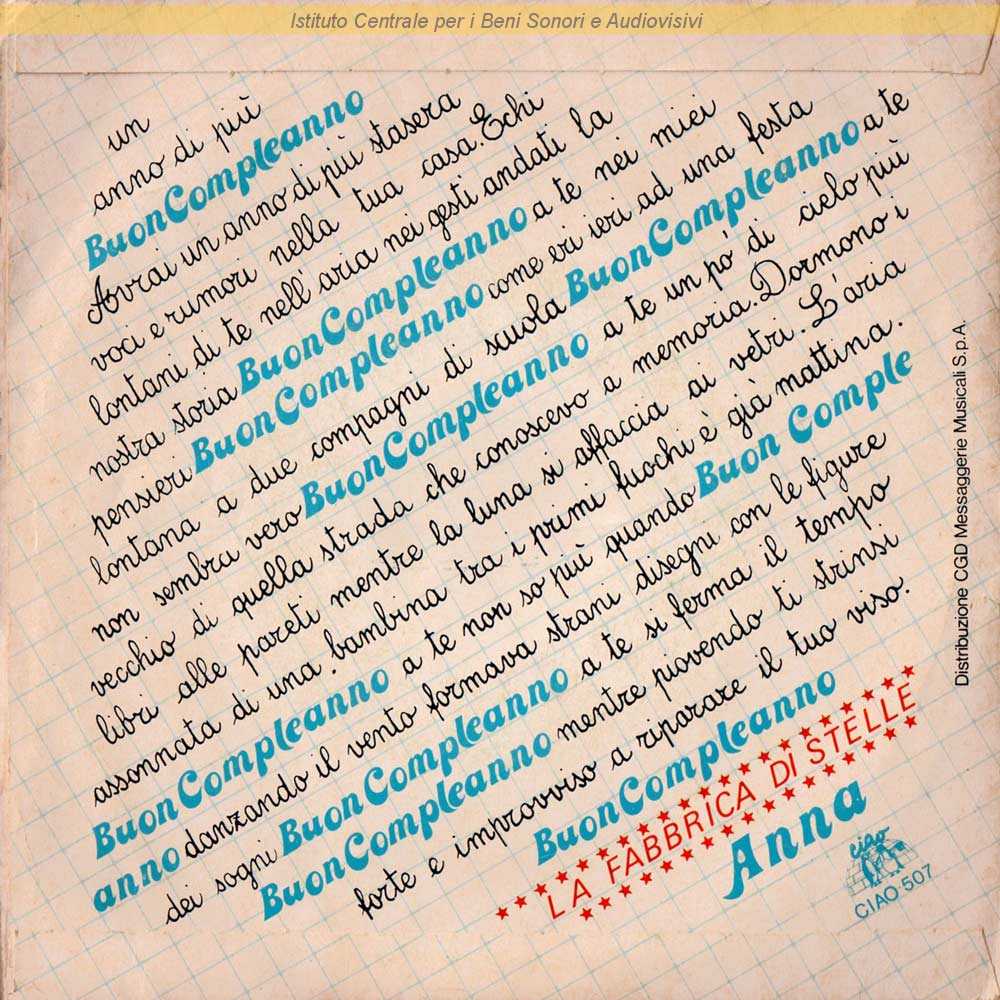 Istituto Centrale per i Beni Sonori e Audiovisivi
un
anno di più
BuonCompleanno
Avrai un anno di più stasera
voci e rumori nella tua casa. Echi
lontani di te nell'aria nei gesti andati la
nostra storia BuonCompleanno a te nei miei
pensieri BuonCompleanno come eri ieri ad una festa
lontana a due compagni di scuola BuonCompleanno a te
non sembra vero BuonCompleanno a te un po' di cielo più
vecchio di quella strada che conoscevo a memoria. Dormono i
libri alle pareti mentre la luna si affaccia ai vetri. L'aria
assonnata di una bambina tra i primi fuochi e' già mattina.
BuonCompleanno a te non so più quando Buon Comple
anno danzando il vento formava strani disegni con le figure
dei sogni Buon Compleanno a te si ferma il tempo
BuonCompleanno mentre piovendo ti strinsi
forte e improvviso a riparare il tuo viso.
BuonCompleanno
LA FABBRICA DI STELLE
Anna
ciao
CIAO 507
Distribuzione CGD Messaggerie Musicali S.p.A.